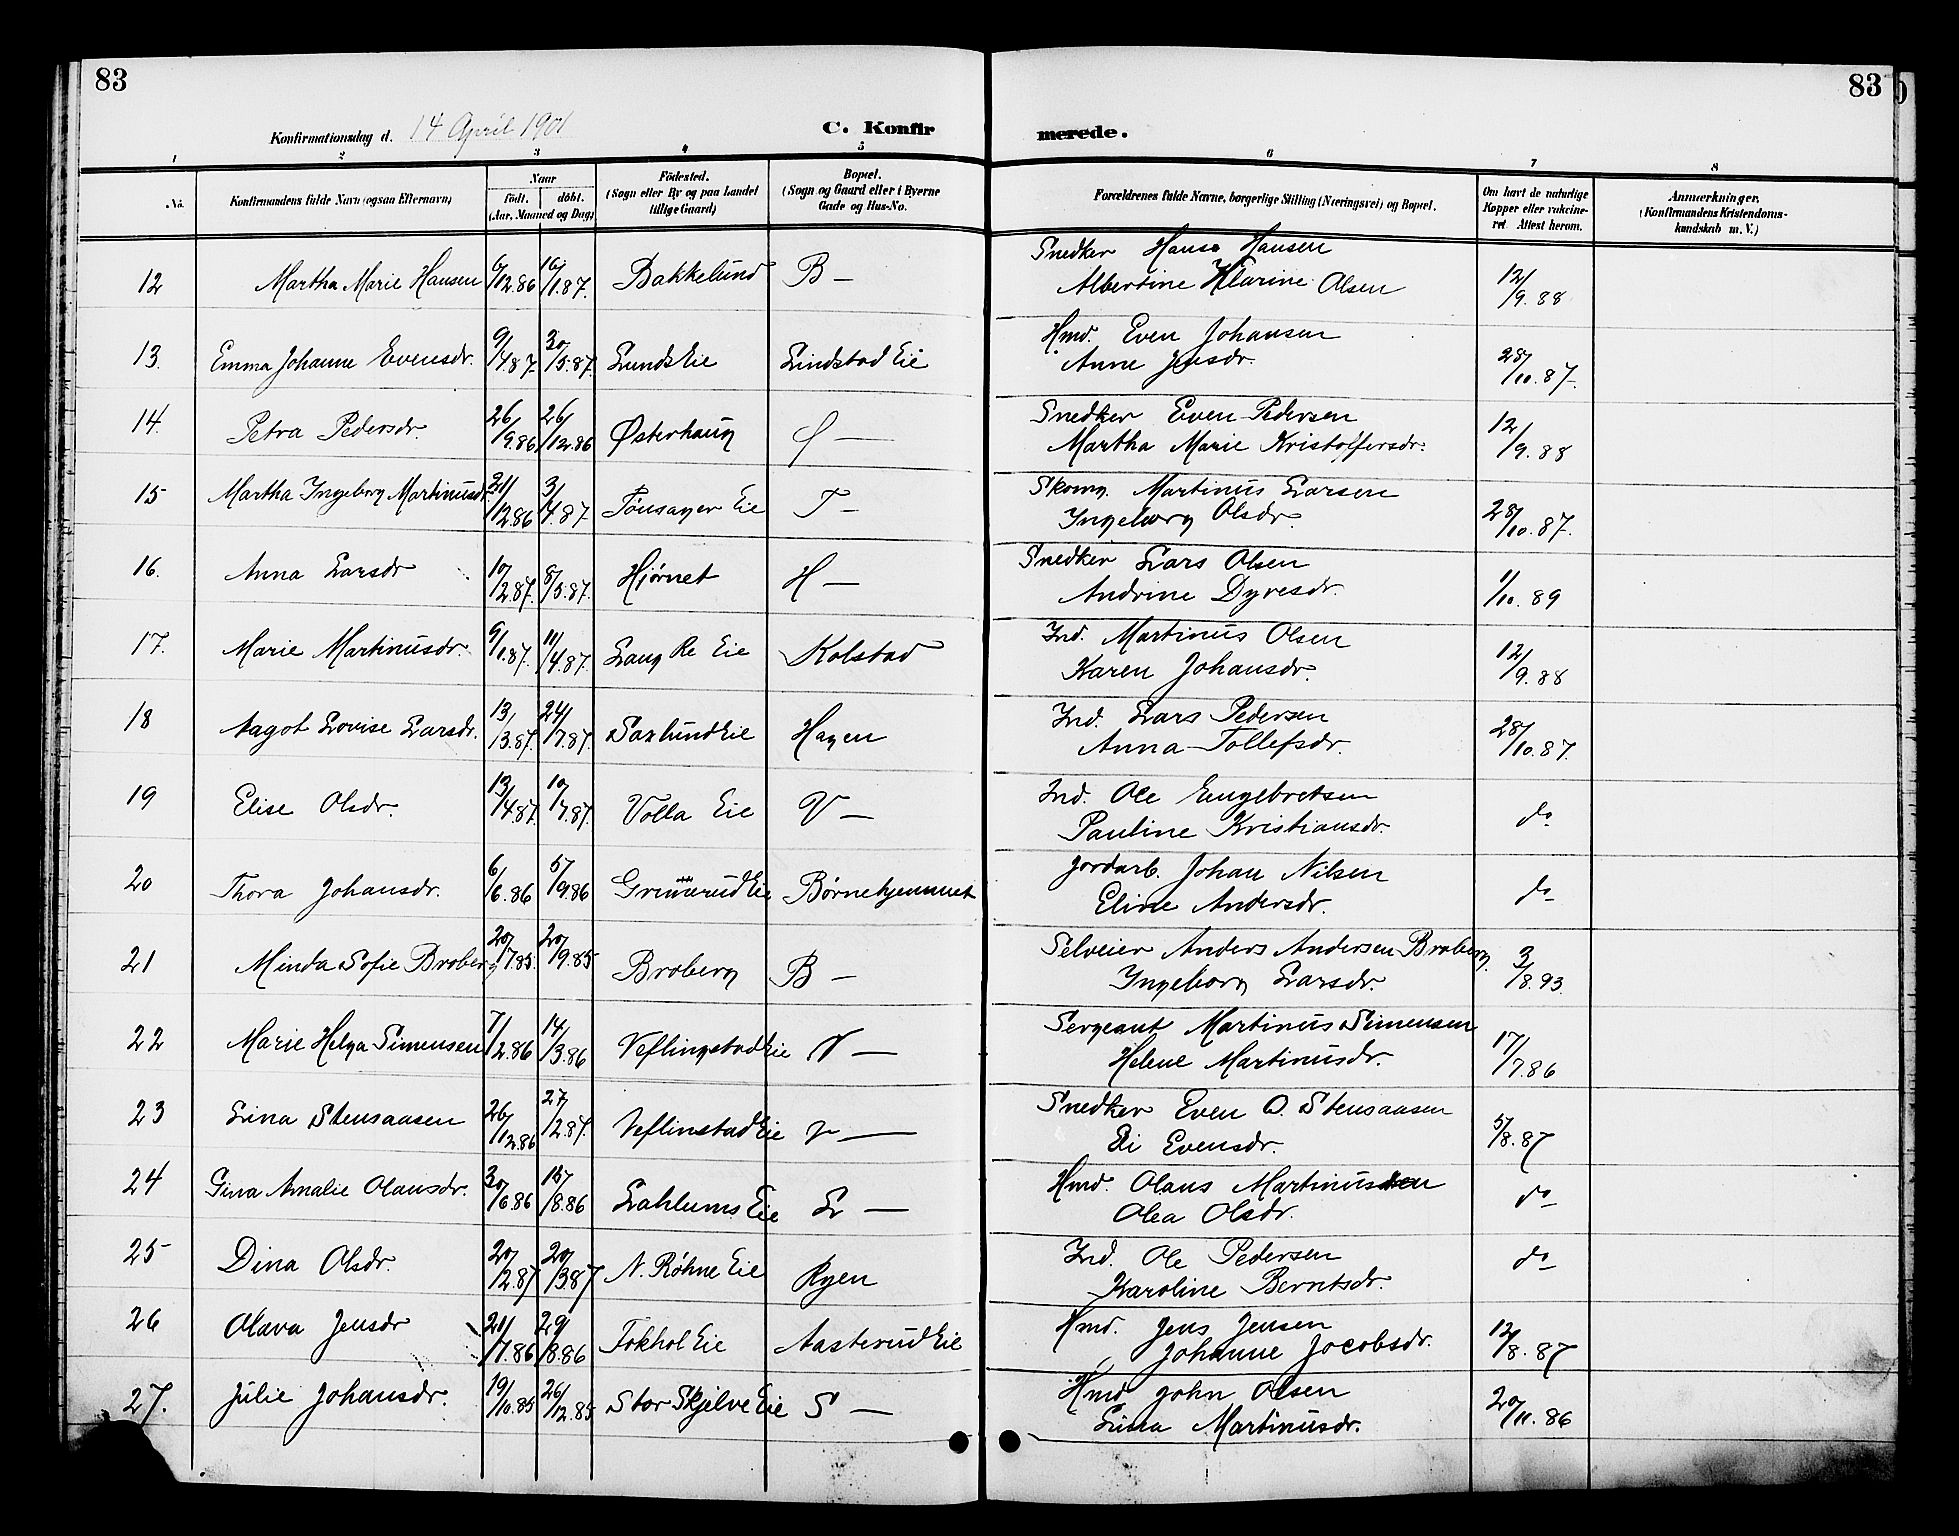 83
83
Konfirmationsdag d. 14 April 1901
C. Konfir
merede.
1 2 3 4 5 6 7 8
No.
Konfirmandens fulde Navn (ogsaa Efternavn)
Naar
födt. döbt.
(Aar, Maaned og Dag)
Födested.
(Sogn eller By og paa Landet
tillige Gaard)
Bopæl.
(Sogn og Gaard eller i Byerne
Gade og Hus-No.
Forældrenes fulde Navne, borgerlige Stilling (Næringsvei) og Bopæl.
Om havt de naturlige
Kopper eller vakcine-
ret Attest herom.
Anmærkninger.
(Konfirmandens Kristendoms-
kundskab m. V.)
12 Martha Marie Hansen 6/12.86 16/1.87. Bakkelund B — Snedker Hans Hansen
Albertine Klarine Olsen 12/9.88
13. Emma Johanne Evensdr. 9/4.87. 30/5.87. Lunds Eie Lindstad Eie Hmd. Even Johansen
Anne Jensdr. 28/10.87.
14. Petra Pedersdr. 26/9.86 26/12.86 Østerhaug Ø — Snedker Even Pedersen
Martha Marie Kristoffersdr. 12/9.88
15 Martha Ingeborg Martinusdr 21/12.86 3/4.87. Tønsager Eie T — Skomg. Martinus Larsen
Ingeborg Olsdr. 28/10.87.
16. Anna Larsdr 10/2.87. 8/5.87. Hjørnet H — Snedker Lars Olsen
Andrine Dyresdr. 1/10.89
17. Marie Martinusdr. 9/1.87. 11/4.87. Lang Re Eie Kolstad Ind. Martinus Olsen
Karen Johansdr. 12/9.88
18 Aagot Lovise Larsdr. 13/3.87. 24/7.87. Saxlund Eie Hagen Ind. Lars Pedersen
Anna Tollefsdr. 28/10.87.
19 Elise Olsdr. 13/4.87. 10/7.87. Volla Eie V — Ind. Ole Engebretsen
Pauline Kristiansdr. do
20 Thora Johansdr. 6/6.86 5/9.86 Grimerud Eie Børnehjemmet Jordarb. Johan Nilsen
Eline Andersdr. do
21 Minda Sofie Broberg 20/7.85. 20/9.85 Broberg B — Selveier Anders Andersen Broberg.
Ingeborg Larsdr. 3/8.93.
22 Marie Helga Simensen 7/2.86 14/3.86 Veflingstad Eie V — Sergeant Martinus Simensen
Helene Martinusdr. 17/7.86
23 Lina Stensaasen 26/12.86 27/2.87. Veflinstad Eie V — Snedker Even O. Stensaasen
Di Evensdr. 5/8.87
24 Gina Amalie Olausdr. 30/6.86 15/8.86 Lahlums Eie L — Hmd. Olaus Martinussen
Olea Olsdr. do
25 Dina Olsdr. 20/2.87 20/3.87 N. Røhne Eie Ryen Ind. Ole Pedersen
Karoline Berntsdr. do
26 Olava Jensdr 21/7.86 29/8.86 Fokhol Eie Aasterud Eie Hmd. Jens Jensen
Johanne Jocobsdr. 12/8.87
27. Julie Johansdr. 19/10.85 26/12.85 Stor Skjelve Eie S — Hmd John Olsen
Lina Martinusdr. 20/11.86